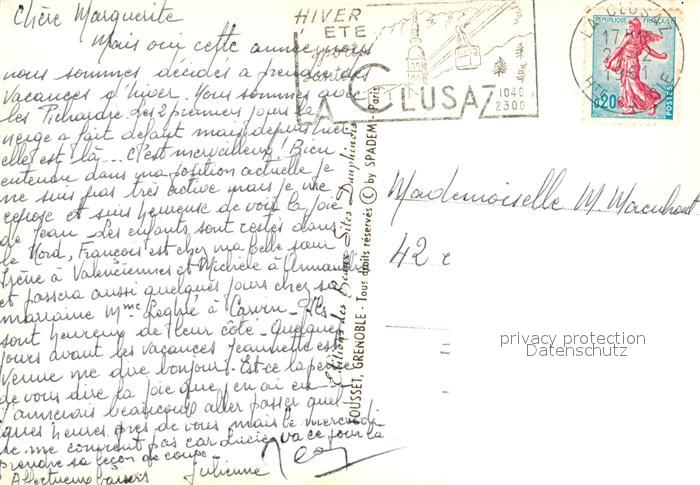 Chère Marguerite
Mais oui cette année nous
nous sommes décidés à prendre des
vacances d'hiver. Nous sommes avec
les Pichardie. Les 2 premiers jours la
neige a fait défaut mais depuis hier
elle est là... C'est merveilleux! Bien
entendu dans ma position actuelle je
ne suis pas très active mais je me
repose et suis heureuse de voir la joie
de Jean. Les enfants sont restés dans
le Nord, François est chez ma belle sœur
Irène à Valenciennes et Michèle à
et passera aussi quelques jours chez sa
marraine Mme à Carvin. Ils
sont heureux de leur côté. Quelques
jours avant les vacances Jeannette est
venue me dire bonjour. Est-ce la peine
de vous dire la joie que j'en ai eu
J'aimerais beaucoup aller passer quel-
ques heures près de vous mais le mercredi
ne me convient pas car Lucie va ce jour là
prendre sa leçon de coupe.
Affectueux baisers Julienne Jean
HIVER
ETE
LA CLUSAZ
1040
2300
LA CLUSAZ
17
1961
HTE
REPUBLIQUE FRANÇAISE
0,20
POSTES
Editions des Beaux Sites Dauphinois
FOUSSET, GRENOBLE - Tous droits réservés © by SPADEM - Paris
Mademoiselle M.
42
privacy protection
Datenschutz